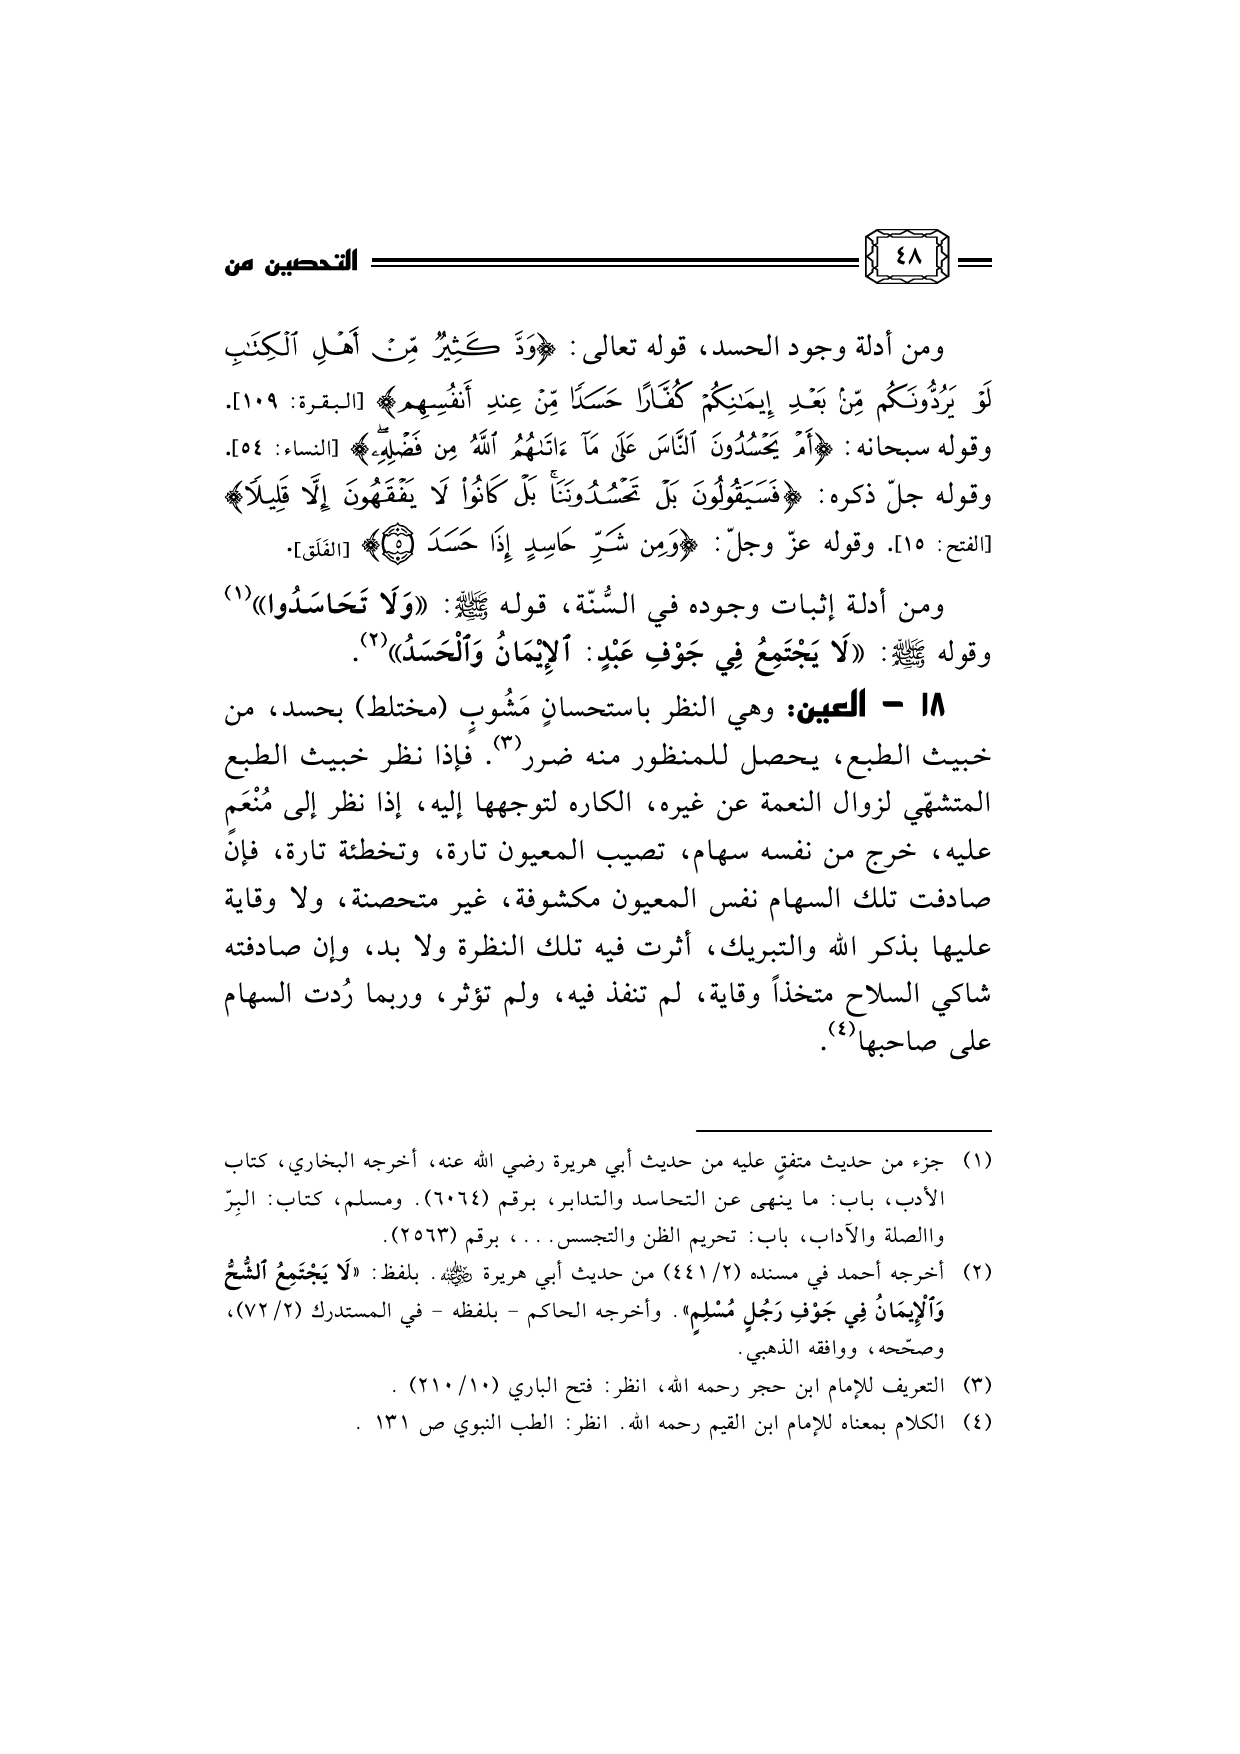 ٤٨
التحصين من
ومن أدلة وجود الحسد، قوله تعالى: ﴿وَدَّ كَثِيرٌ مِّنْ أَهْلِ ٱلْكِتَٰبِ
لَوْ يَرُدُّونَكُم مِّنۢ بَعْدِ إِيمَٰنِكُمْ كُفَّارًا حَسَدًا مِّنْ عِندِ أَنفُسِهِم﴾ [البقرة: ١٠٩].
وقوله سبحانه: ﴿أَمْ يَحْسُدُونَ ٱلنَّاسَ عَلَىٰ مَآ ءَاتَىٰهُمُ ٱللَّهُ مِن فَضْلِهِۦۖ﴾ [النساء: ٥٤].
وقوله جلّ ذكره: ﴿فَسَيَقُولُونَ بَلْ تَحْسُدُونَنَاۚ بَلْ كَانُوا۟ لَا يَفْقَهُونَ إِلَّا قَلِيلًا﴾
[الفتح: ١٥]. وقوله عزّ وجلّ: ﴿وَمِن شَرِّ حَاسِدٍ إِذَا حَسَدَ ٥﴾ [الفَلَق].
ومن أدلة إثبات وجوده في السُّنّة، قوله ﷺ: «وَلَا تَحَاسَدُوا»(١)
وقوله ﷺ: «لَا يَجْتَمِعُ فِي جَوْفِ عَبْدٍ: ٱلإِيْمَانُ وَٱلْحَسَدُ»(٢).
١٨ - العين: وهي النظر باستحسانٍ مَشُوبٍ (مختلط) بحسد، من
خبيث الطبع، يحصل للمنظور منه ضرر(٣). فإذا نظر خبيث الطبع
المتشهّي لزوال النعمة عن غيره، الكاره لتوجهها إليه، إذا نظر إلى مُنْعَمٍ
عليه، خرج من نفسه سهام، تصيب المعيون تارة، وتخطئة تارة، فإن
صادفت تلك السهام نفس المعيون مكشوفة، غير متحصنة، ولا وقاية
عليها بذكر الله والتبريك، أثرت فيه تلك النظرة ولا بد، وإن صادفته
شاكي السلاح متخذاً وقاية، لم تنفذ فيه، ولم تؤثر، وربما رُدت السهام
على صاحبها(٤).
(١) جزء من حديث متفقٍ عليه من حديث أبي هريرة رضي الله عنه، أخرجه البخاري، كتاب
الأدب، باب: ما ينهى عن التحاسد والتدابر، برقم (٦٠٦٤). ومسلم، كتاب: البِرّ
واالصلة والآداب، باب: تحريم الظن والتجسس...، برقم (٢٥٦٣).
(٢) أخرجه أحمد في مسنده (٤٤١/٢) من حديث أبي هريرة رضي الله عنه. بلفظ: «لَا يَجْتَمِعُ ٱلشُّحُّ
وَٱلْإِيمَانُ فِي جَوْفِ رَجُلٍ مُسْلِمٍ». وأخرجه الحاكم - بلفظه - في المستدرك (٧٢/٢)،
وصحّحه، ووافقه الذهبي.
(٣) التعريف للإمام ابن حجر رحمه الله، انظر: فتح الباري (٢١٠/١٠) .
(٤) الكلام بمعناه للإمام ابن القيم رحمه الله. انظر: الطب النبوي ص ١٣١ .